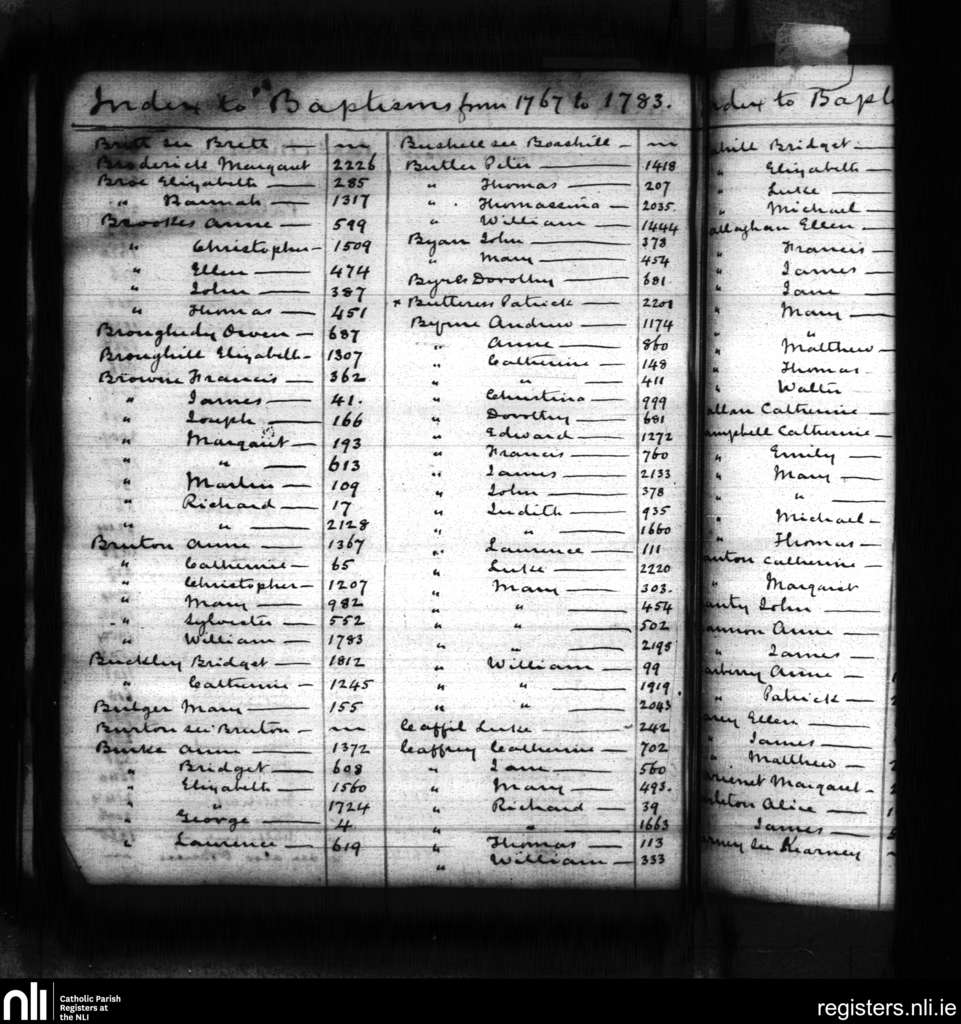 Index to Baptisms from 1767 to 1783.
Britt see Brett — "
Broderick Margaret 2226
Broe Elizabeth — 285
" Hannah — 1317
Brookes Anne — 599
" Christopher — 1509
" Ellen — 474
" John — 387
" Thomas — 451
Broughedy Owen — 687
Broughill Elizabeth — 1307
Browne Francis — 362
" James — 41.
" Joseph — 166
" Margaret — 193
" " — 613
" Martin — 109
" Richard — 17
" " — 2128
Bruton Anne — 1367
" Catherine — 65
" Christopher — 1207
" Mary — 982
" Sylvester — 552
" William — 1783
Buckley Bridget — 1812
" Catherine — 1245
Bulger Mary — 155
Burton see Bruton — "
Burke Anne — 1372
" Bridget — 608
" Elizabeth — 1560
" " 1724
" George — 4
" Laurence — 619
Bushell see Boashill — "
Butler Peter — 1418
" Thomas — 207
" Thomasina — 2035.
" William — 1444
Byan John — 378
" Mary — 454
Byrls Dorothy — 681
x Butteress Patrick — 2201
Byrne Andrew — 1174
" Anne — 860
" Catherine — 148
" " — 411
" Christina — 999
" Dorothy — 681
" Edward — 1272
" Francis — 760
" James — 2133
" John — 378
" Judith — 935
" " — 1660
" Laurence — 111
" Luke — 2220
" Mary — 303.
" " — 454
" " — 502
" " — 2195
" William — 99
" " — 1919.
" " — 2043
Caffil Luke — 242
Caffrey Catherine — 702
" Jane — 560
" Mary — 493.
" Richard — 39
" " — 1663
" Thomas — 113
" William — 333
ndex to Bapt
ahill Bridget —
" Elizabeth —
" Luke —
" Michael —
allaghan Ellen —
" Francis —
" James —
" Jane —
" Mary —
" "
" Matthew —
" Thomas —
" Walter
allan Catherine —
ampbell Catherine —
" Emily —
" Mary —
" " —
" Michael —
" Thomas —
anton Catherine —
" Margaret
anty John —
annon Anne —
" James —
arberry Anne —
" Patrick —
arey Ellen —
" James —
" Matthew —
Margaret —
arleton Alice —
James —
arney see Kearney
nli
Catholic Parish
Registers at
the NLI
registers.nli.ie